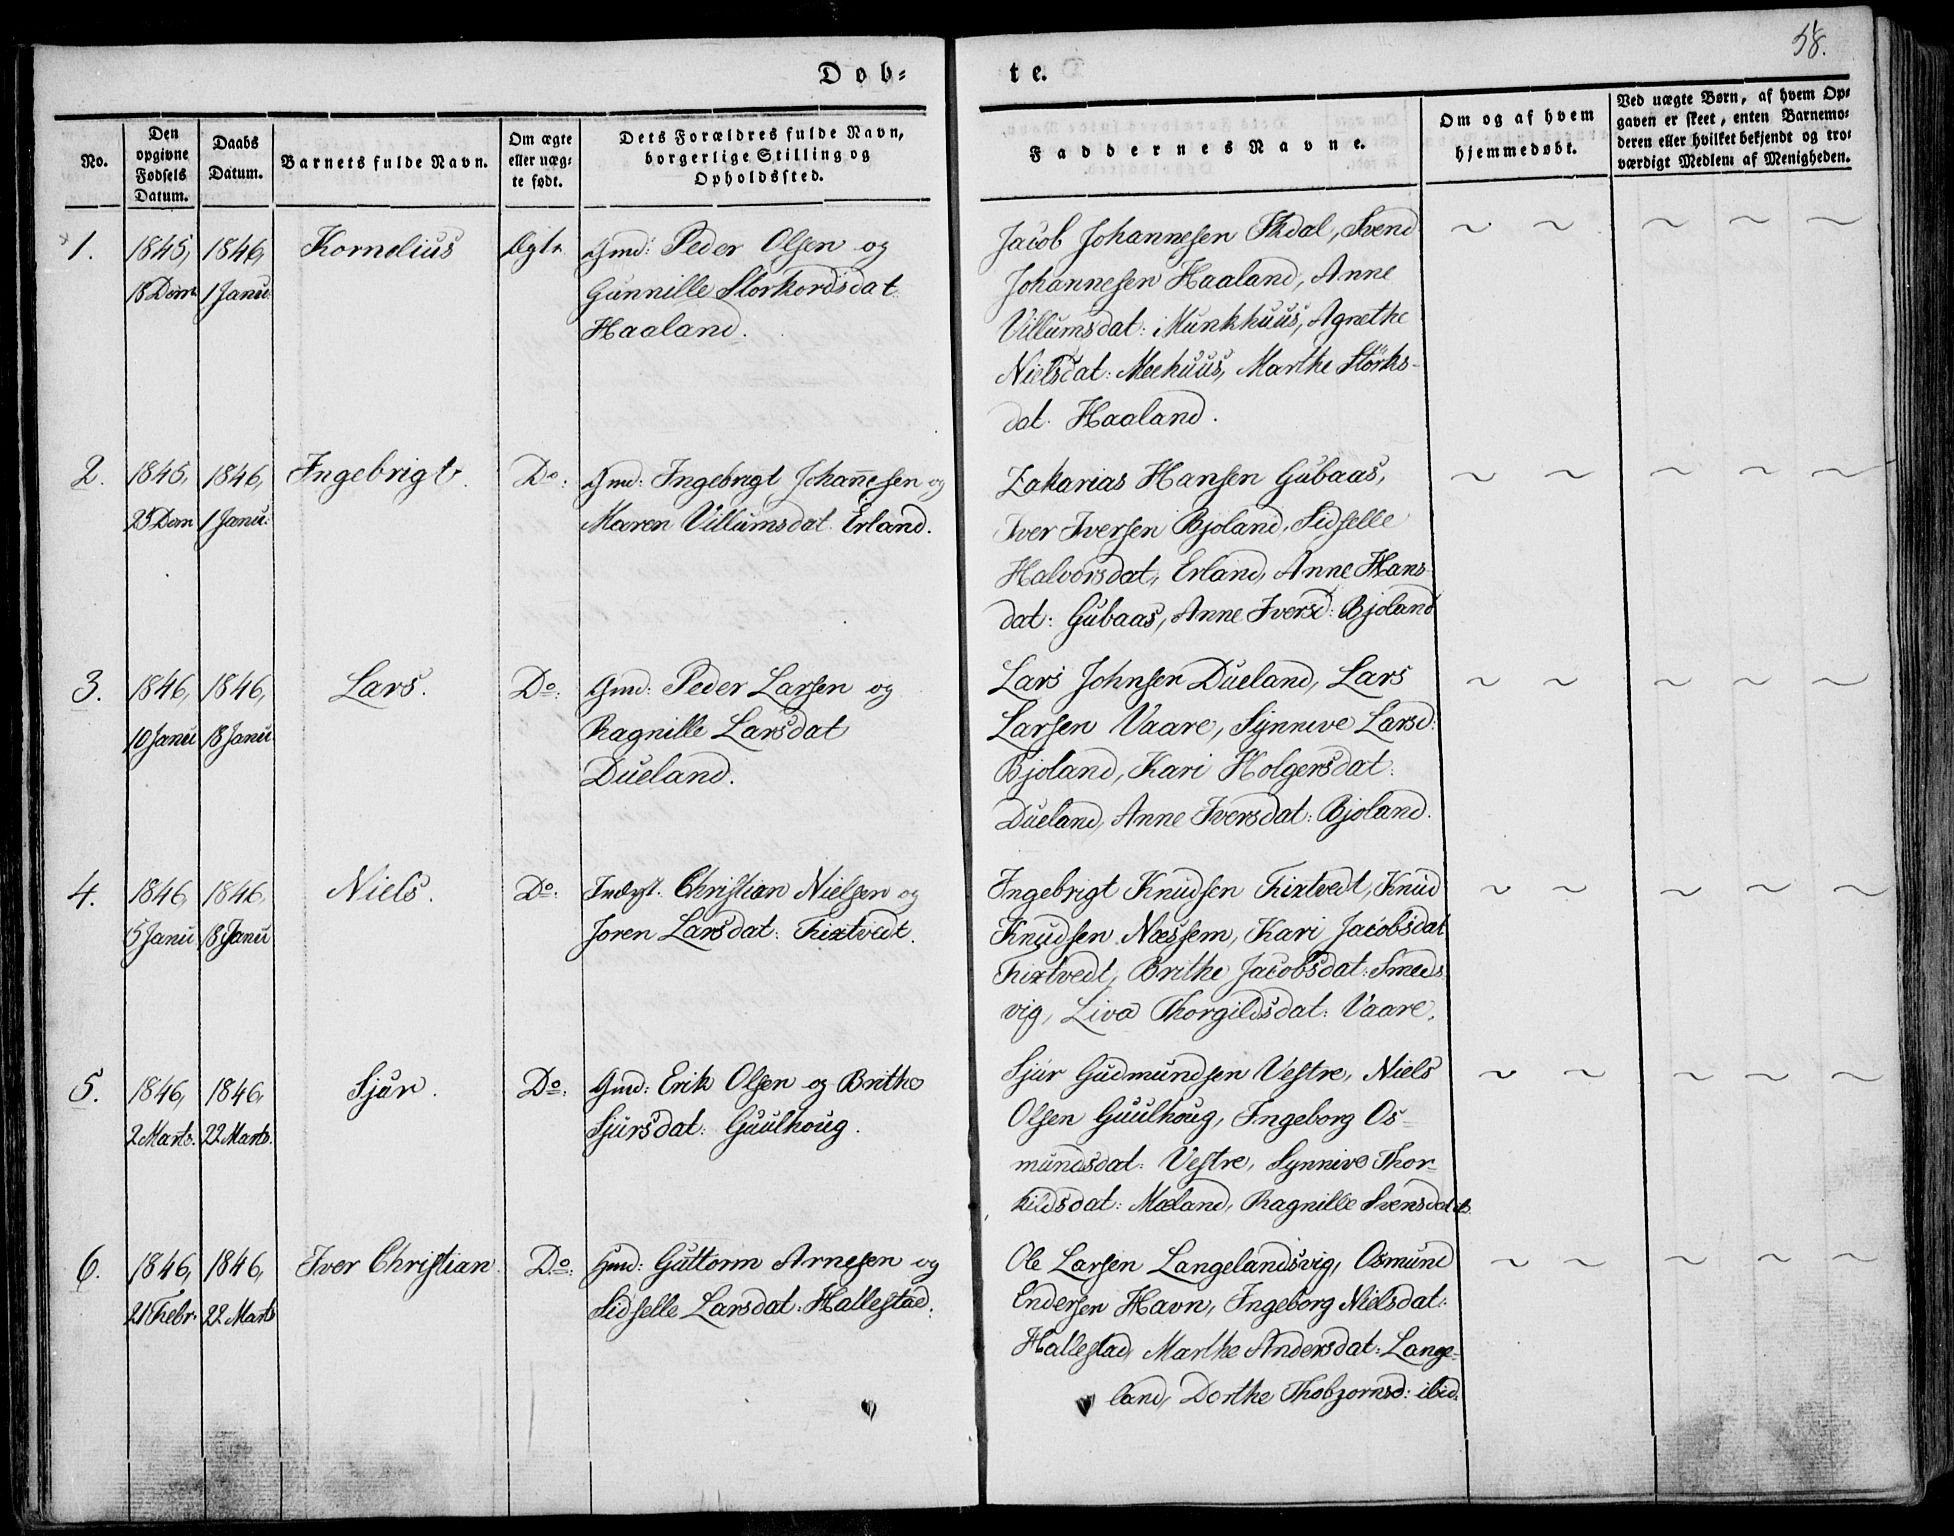 58.
Døb-
te.
No.
Den opgivne Fødsels Datum.
Daabs Datum.
Barnets fulde Navn.
Om ægte eller uæg-te født.
Dets Forældres fulde Navn, borgerlige Stilling og Opholdssted.
Faddernes Navne.
Om og af hvem hjemmedøbt.
Ved uægte Børn, af hvem Op-gaven er skeet, enten Barnemo-deren eller hvilket bekjendt og tro-værdigt Medlem af Menigheden.
1.
1845, 18 Decm
1846, 1 Janu:
Kornelius
Ægte
Gmd: Peder Olsen og
Gunnille Storkordsdat
Haaland.
Jacob Johannesen Skdal, Svend
Johannesen Haaland, Anne
Villumsdat: Munkhuus, Agnethe
Nielsdat: Meehuus, Marthe Storks-
dat: Haaland.
2.
1845, 25 Decm
1846, 1 Janu:
Ingebrigt.
Do:
Gmd: Ingebrigt Johannesen og
Maren Villumsdat Erland.
Zakarias Hansen Gubaas,
Iver Iversen Bjoland, Sidselle
Halvorsdat, Erland, Anne Hans-
dat: Gubaas, Anne Iversd: Bjoland
3.
1846, 10 Janu
1846, 18 Janu
Lars.
Do:
Gmd: Peder Larsen og
Ragnille Larsdat
Dueland.
Lars Johnsen Dueland, Lars
Larsen Vaare, Synneve Larsd:
Bjoland, Kari Holgersdat:
Dueland, Anne Iversdat: Bjoland.
4.
1846, 5 Janu
1846, 18 Janu
Niels.
Do:
Inderst. Christian Nielsen og
Joren Larsdat: Tixtvedt.
Ingebrigt Knudsen Tixtvedt, Knud
Knudsen Næssem, Kari Jacobsdat
Tixtvedt, Brithe Jacobsdat: Smeds-
vig, Liva Thorgildsdat: Vaare.
5.
1846, 2 Marts.
1846, 22 Marts.
Sjur.
Do:
Gmd: Erik Olsen og Brithe
Sjursdat: Guulhoug.
Sjur Gudmundsen Vestre, Niels
Olsen Guulhoug, Ingeborg Os-
mundsdat: Vestre, Synnive Thor-
kildsdat: Mæland, Ragnille Svensdat
6.
1846, 21 Febr.
1846, 22 Marts
Iver Christian
Do:
Gmd: Guttorm Arnesen og
Sidselle Larsdat: Hallestad.
Ole Larsen Langelandsvig, Osmund
Endersen Havn, Ingeborg Nielsdat:
Hallestad, Marthe Andersdat: Lange-
land, Dorthe Thobjornsd: ibid.